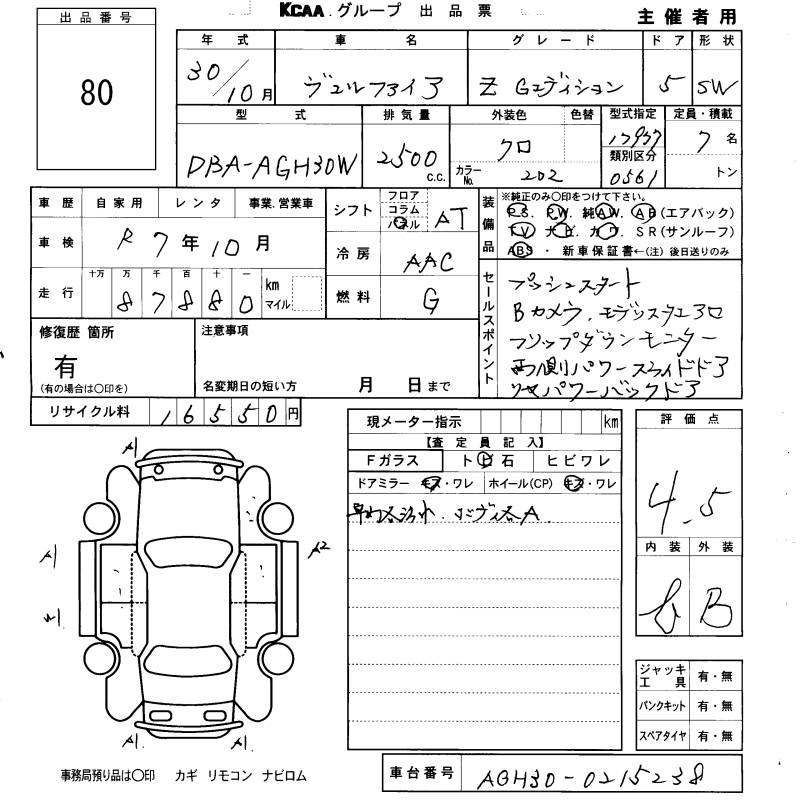 KCAA.グループ 出品票
主催者用
出品番号
80
年式 車名 グレード ドア 形状
30/10月 ヴェルファイア Z Gエディション 5 SW
型式 排気量 外装色 色替 型式指定 定員・積載
DBA-AGH30W 2500 c.c. クロ 17937 7名
カラーNo. 202 類別区分 0561 トン
車歴 自家用 レンタ 事業.営業車
車検 R7年10月
走行 十万 万 千 百 十 一 km マイル
87880
シフト フロア コラム パネル AT
冷房 AAC
燃料 G
装備品
※純正のみ〇印をつけて下さい。
P.S. P.W. 純A.W. A.B(エアバック)
T.V ナビ. カワ. S R(サンルーフ)
ABS ・ 新車保証書←(注)後日送りのみ
セールスポイント
プッシュスタート
Bカメラ.モデリスタエアロ
フリップダウンモニター
両側パワースライドドア
リヤパワーバックドア
修復歴 箇所
有
(有の場合は〇印を)
注意事項
名変期日の短い方 月 日まで
リサイクル料 16550円
現メーター指示 km
【査定員記入】
Fガラス ト ビ 石 ヒビワレ
ドアミラー キズ・ワレ ホイール(CP) キズ・ワレ
評価点
4.5
内装 外装
B
ジャッキ工具 有・無
パンクキット 有・無
スペアタイヤ 有・無
A1
A1
A1
A2
A1
A1
事務局預り品は〇印 カギ リモコン ナビロム
車台番号 AGH30-0215238